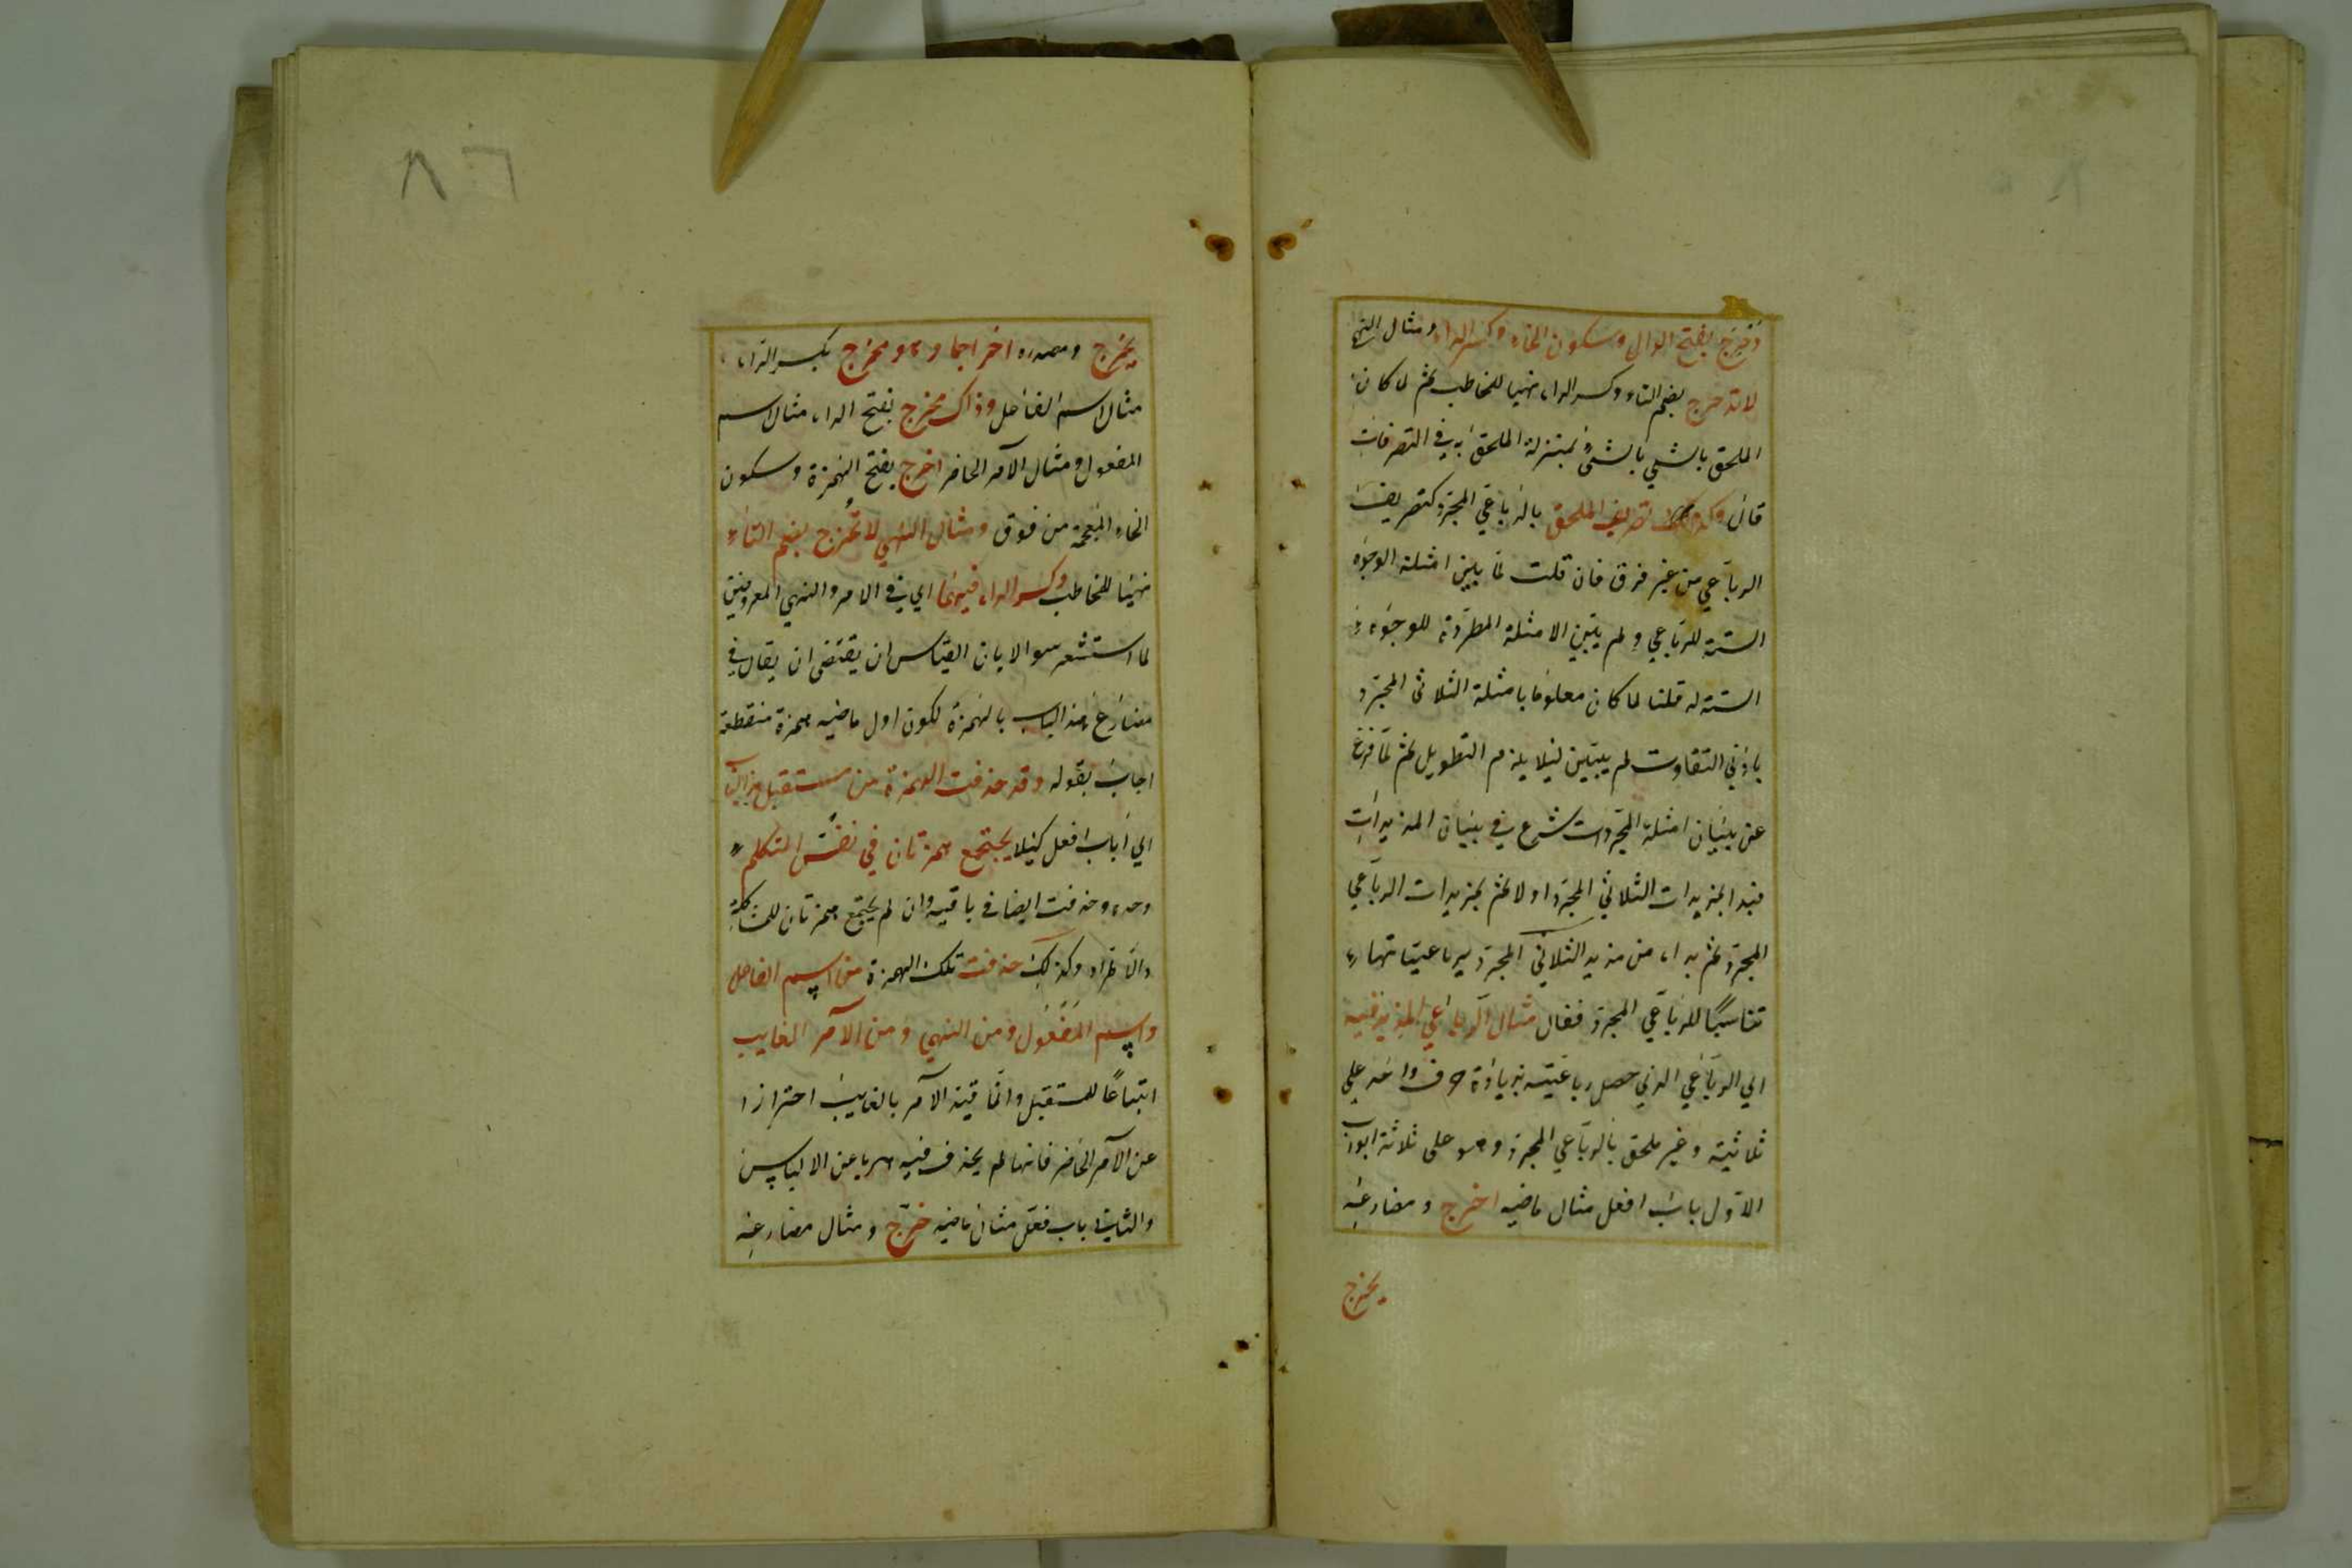 دحرج بفتح الدال وسكون الحاء وكسر الراء ومثال النهي
لا تدحرج بضم التاء وكسر الراء نهيا للمخاطب ثم لما كان
الملحق بالشي بالشي بمنزلة الملحق به في التصرفات
قال وكذلك تصريف الملحق بالرباعي المجرد كتصريف
الرباعي من غير فرق فان قلت لم يبين امثلة الوجوه
الستة للرباعي ولم يبين الامثلة المطردة للوجوه
الستة له قلنا لما كان معلوما بامثلة الثلاثي المجرد
بادني التفاوت لم يبين ليلا يلزم التطويل ثم لما فرغ
عن بيان امثلة المجردات شرع في بيان المزيدات
فبدا بمزيدات الثلاثي المجرد اولا ثم بمزيدات الرباعي
المجرد ثم بدا من مزيد الثلاثي المجرد برباعياتها
تناسبا للرباعي المجرد فقال مثال الرباعي المزيد فيه
اي الرباعي الذي حصل رباعيته بزيادة حرف واحد علي
ثلاثيته وغير ملحق بالرباعي المجرد وهو على ثلاثة ابواب
الاول باب افعل مثال ماضيه اخرج ومضارعه
يخرج
٨٦
يخرج ومصدره اخراجا وهو مخرج بكسر الراء
مثال اسم الفاعل وذاك مخرج بفتح الراء مثال اسم
المفعول ومثال الامر الحاضر اخرج بفتح الهمزة وسكون
الخاء المعجمة من فوق ومثال النهي لا تخرج بضم التاء
نهيا للمخاطب وكسر الراء فيهما اي في الامر والنهي المعروفين
لما استشعر سوالا بان القياس ان يقتضى ان يقال في
مضارع هذا الباب بالهمزة لكون اول ماضيه همزة منقطعة
اجاب بقوله وقد حذفت الهمزة من مستقبل هذا الباب
اي باب افعل كيلا يجتمع همزتان في نفس المتكلم
وحده وحذفت ايضا في باقيه وان لم يجتمع همزتان للمشاكلة
والاطراد وكذلك حذفت تلك الهمزة من اسم الفاعل
واسم المفعول ومن النهي ومن الامر الغايب
اتباعا للمستقبل وانما قيد الامر بالغايب احترازا
عن الامر الحاضر فانها لم يحذف فيه هربا عن الالباس
والثاني باب فعل مثال ماضيه خرج ومثال مضارعه